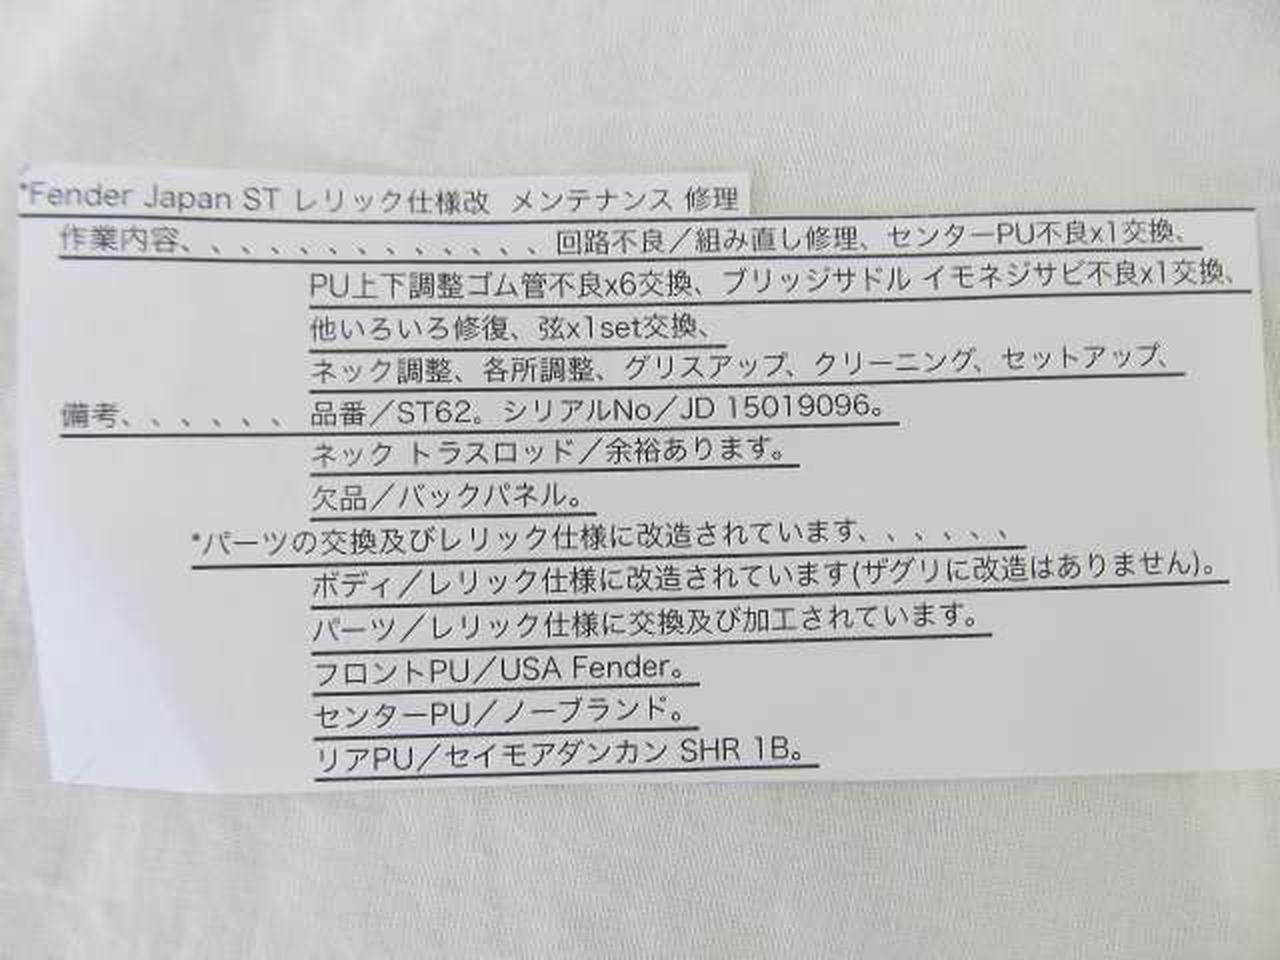 *Fender Japan ST レリック仕様改 メンテナンス 修理
作業内容、、、、、、、、、、、、、回路不良／組み直し修理、センターPU不良x1交換、
PU上下調整ゴム管不良x6交換、ブリッジサドル イモネジサビ不良x1交換、
他いろいろ修復、弦x1set交換、
ネック調整、各所調整、グリスアップ、クリーニング、セットアップ、
備考、、、、、、品番／ST62。シリアルNo／JD 15019096。
ネック トラスロッド／余裕あります。
欠品／バックパネル。
*パーツの交換及びレリック仕様に改造されています、、、、、、
ボディ／レリック仕様に改造されています(ザグリに改造はありません)。
パーツ／レリック仕様に交換及び加工されています。
フロントPU／USA Fender。
センターPU／ノーブランド。
リアPU／セイモアダンカン SHR 1B。